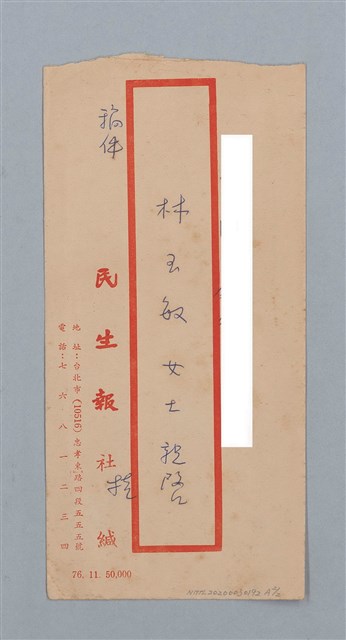 林玉敏女士親啟
稿件
民生報社緘
地址：台北市(10516)忠孝東路四段五五五號
電話：七六八一二三四
76. 11. 50,000